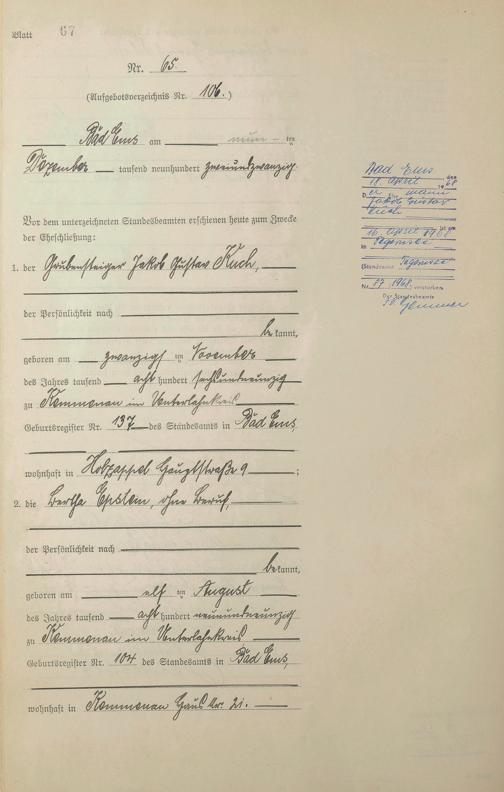 Blatt 67
Nr. 65
(Aufgebotsverzeichnis Nr. 106.)
Bad Ems am neun ten
Dezember tausend neunhundert zweiundzwanzig
Vor dem unterzeichneten Standesbeamten erschienen heute zum Zwecke
der Eheschließung:
1. der Grubensteiger Jakob Gustav Kuch,
der Persönlichkeit nach
bekannt,
geboren am zwanzigsten November
des Jahres tausend acht hundert sechsundneunzig
zu Kemmenau im Unterlahnkreis
Geburtsregister Nr. 137 des Standesamts in Bad Ems
wohnhaft in Holzappel Hauptstraße 9 ;
2. die Bertha, ohne Beruf,
der Persönlichkeit nach
bekannt,
geboren am elf ten August
des Jahres tausend acht hundert neunundneunzig
zu Kemmenau im Unterlahnkreis
Geburtsregister Nr. 104 des Standesamts in Bad Ems,
wohnhaft in Kemmenau Haus Nr. 21.
Bad Ems den
18. April 1968
Der Mann
Jakob Gustav
Kuch
ist am
16. April 1968
in
Standesamt
Nr. 77/1968 verstorben
Der Standesbeamte